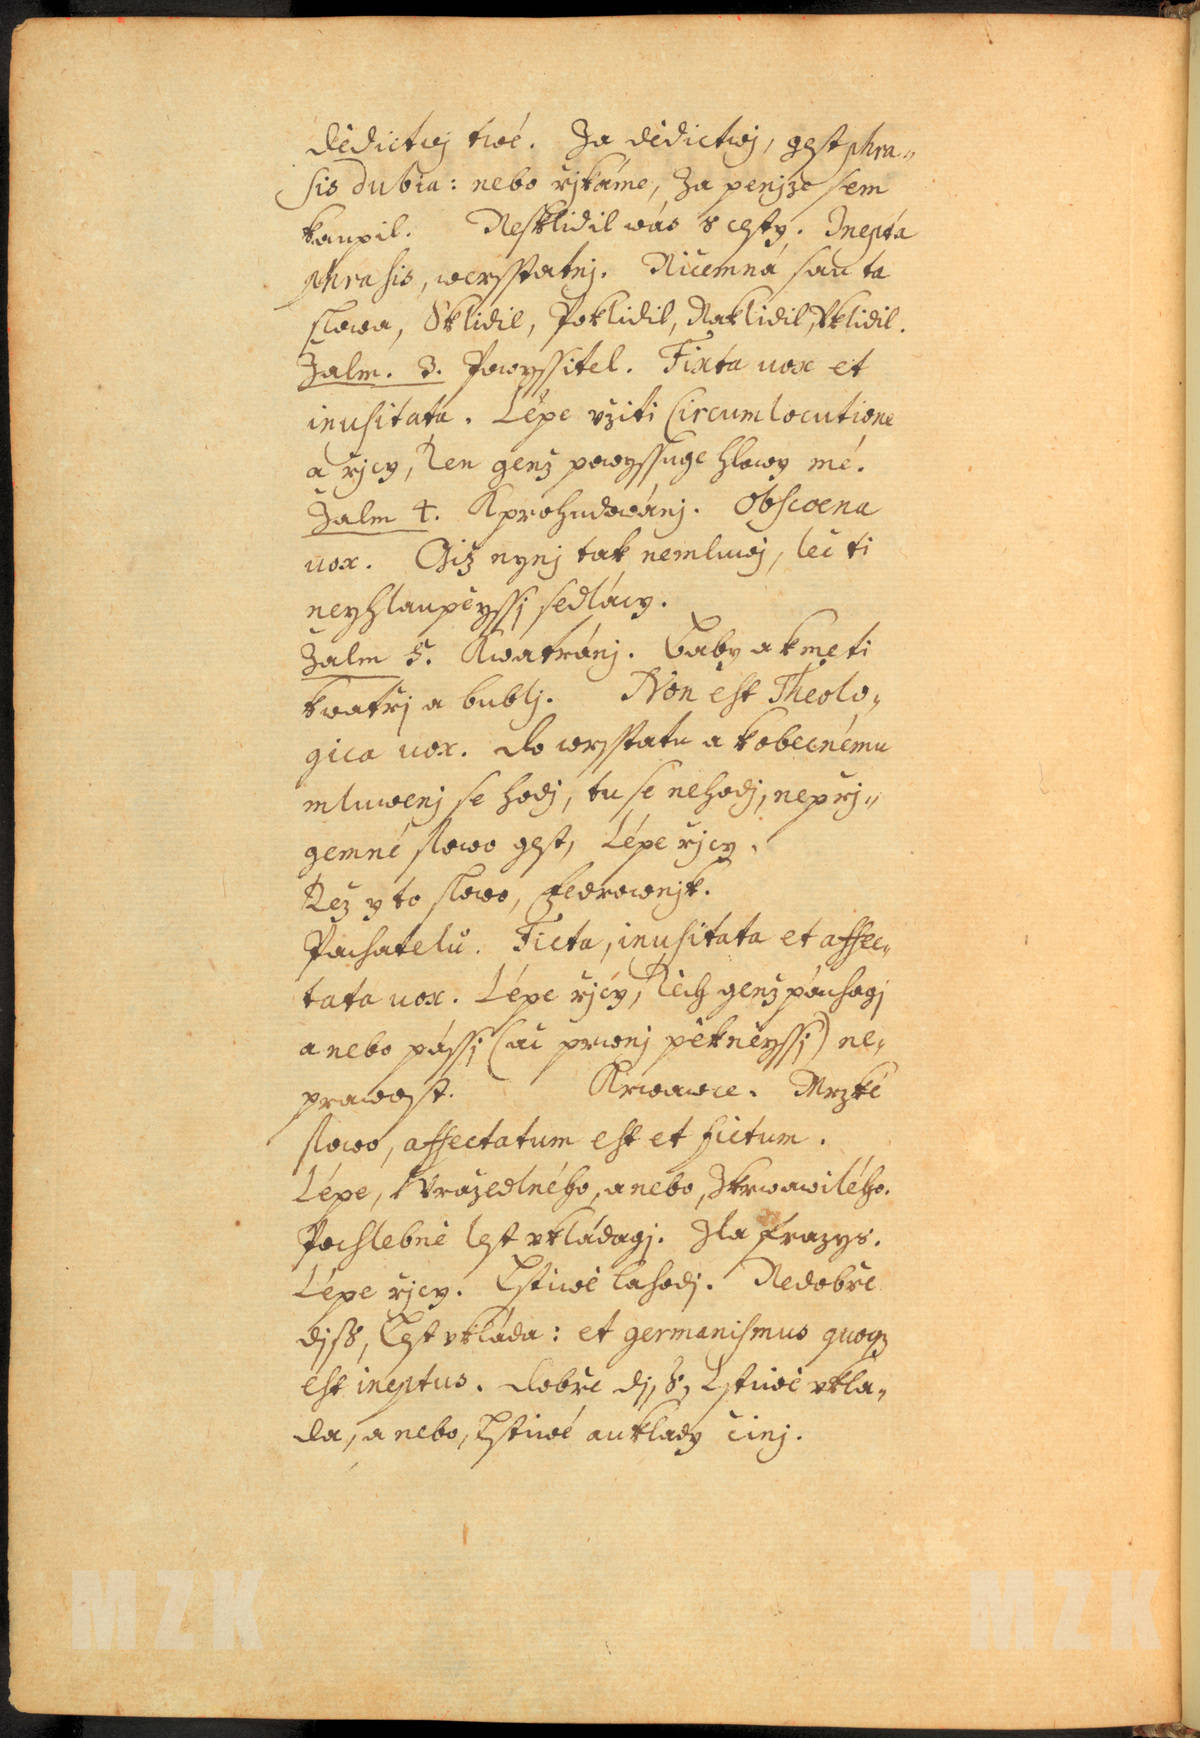 dědictwj twé. Za dědictwj, gest phra„
sis dubia: nebo řjkáme, Za penjze sem
kaupil. Neskľidil wás s cesty. Inepta
phrasis, wersstatnj. Ničemná sau ta
slowa, Skľidil, Pokľidil, Nakľidil, Vkľidil.
Žalm. 3. Powyssitel. Ficta uox et
inusitata. Lépe vžiti Circumlocutione
a řjcy, Ten genž powyssuge hlawy mé.
Žalm 4. K prohudowánj. Obscoena
uox. Giž nynj tak nemluwj, leč ti
neyhlaupěyssj sedlácy.
Žalm 5. Kwatránj. Baby a kmeti
kwatřj a bublj. Non est Theolo„
gica uox. do wersstatu a k obecnému
mluwenj se hodj, tu se nehodj, nepřj„
gemné slowo gest, Lépe řjcy.
Též y to slowo, Fedrownjk.
Pachatelů. Ficta, inusitata et affec„
tata uox. Lépe řjcy, Těch genž páchagj
anebo pássj (ač prwnj pěkněyssj) ne„
prawost. Krwawce. Mrzké
slowo, affectatum est et fictum.
Lépe, Wražedlného, anebo, Zkrwawilého.
Pochlebně lest vkládagj. Zla frazys.
Lépe řjcy. Lstiwě lahodj. Nedobře
djss, Lest vkláda: et germanismus quoq3
est ineptus. dobře djss, Lstiwě vkla„
da, anebo, Lstiwé auklady činj.
MZK
MZK